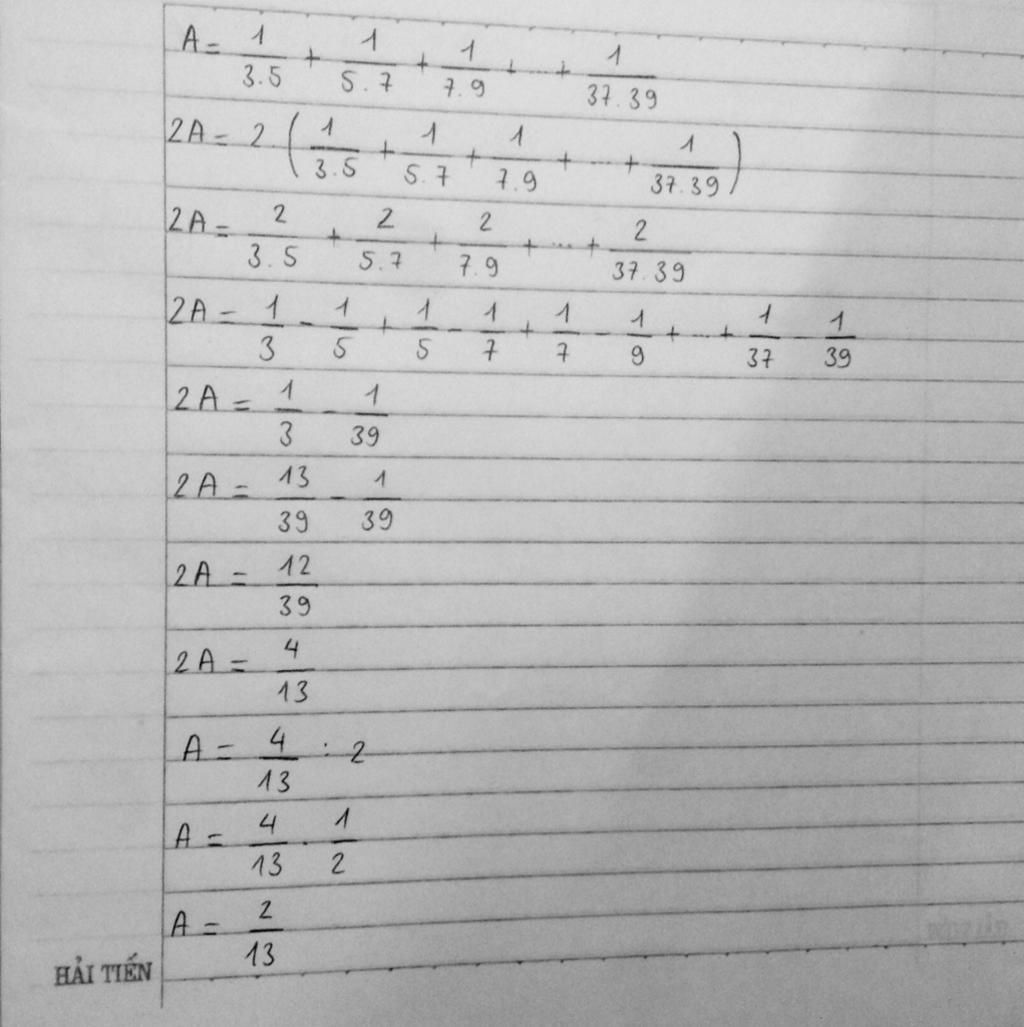 A = 1/3.5 + 1/5.7 + 1/7.9 + ... + 1/37.39
2A = 2.(1/3.5 + 1/5.7 + 1/7.9 + ... + 1/37.39)
2A = 2/3.5 + 2/5.7 + 2/7.9 + ... + 2/37.39
2A = 1/3 - 1/5 + 1/5 - 1/7 + 1/7 - 1/9 + ... + 1/37 - 1/39
2A = 1/3 - 1/39
2A = 13/39 - 1/39
2A = 12/39
2A = 4/13
A = 4/13 : 2
A = 4/13 . 1/2
A = 2/13
HẢI TIẾN